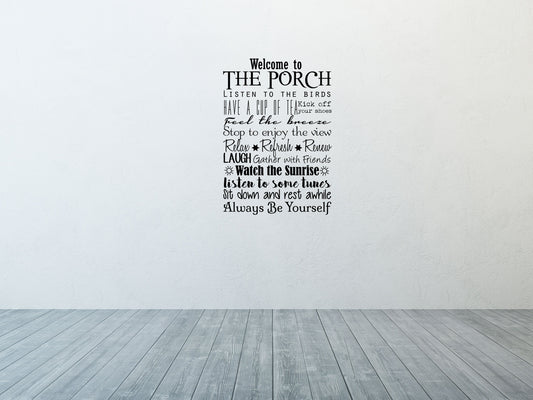 Welcome to
THE PORCH
LISTEN TO THE BIRDS
HAVE A CUP OF TEA Kick off your shoes
Feel the breeze
Stop to enjoy the view
Relax Refresh Renew
LAUGH Gather with Friends
Watch the Sunrise
listen to some tunes
Sit down and rest awhile
Always Be Yourself